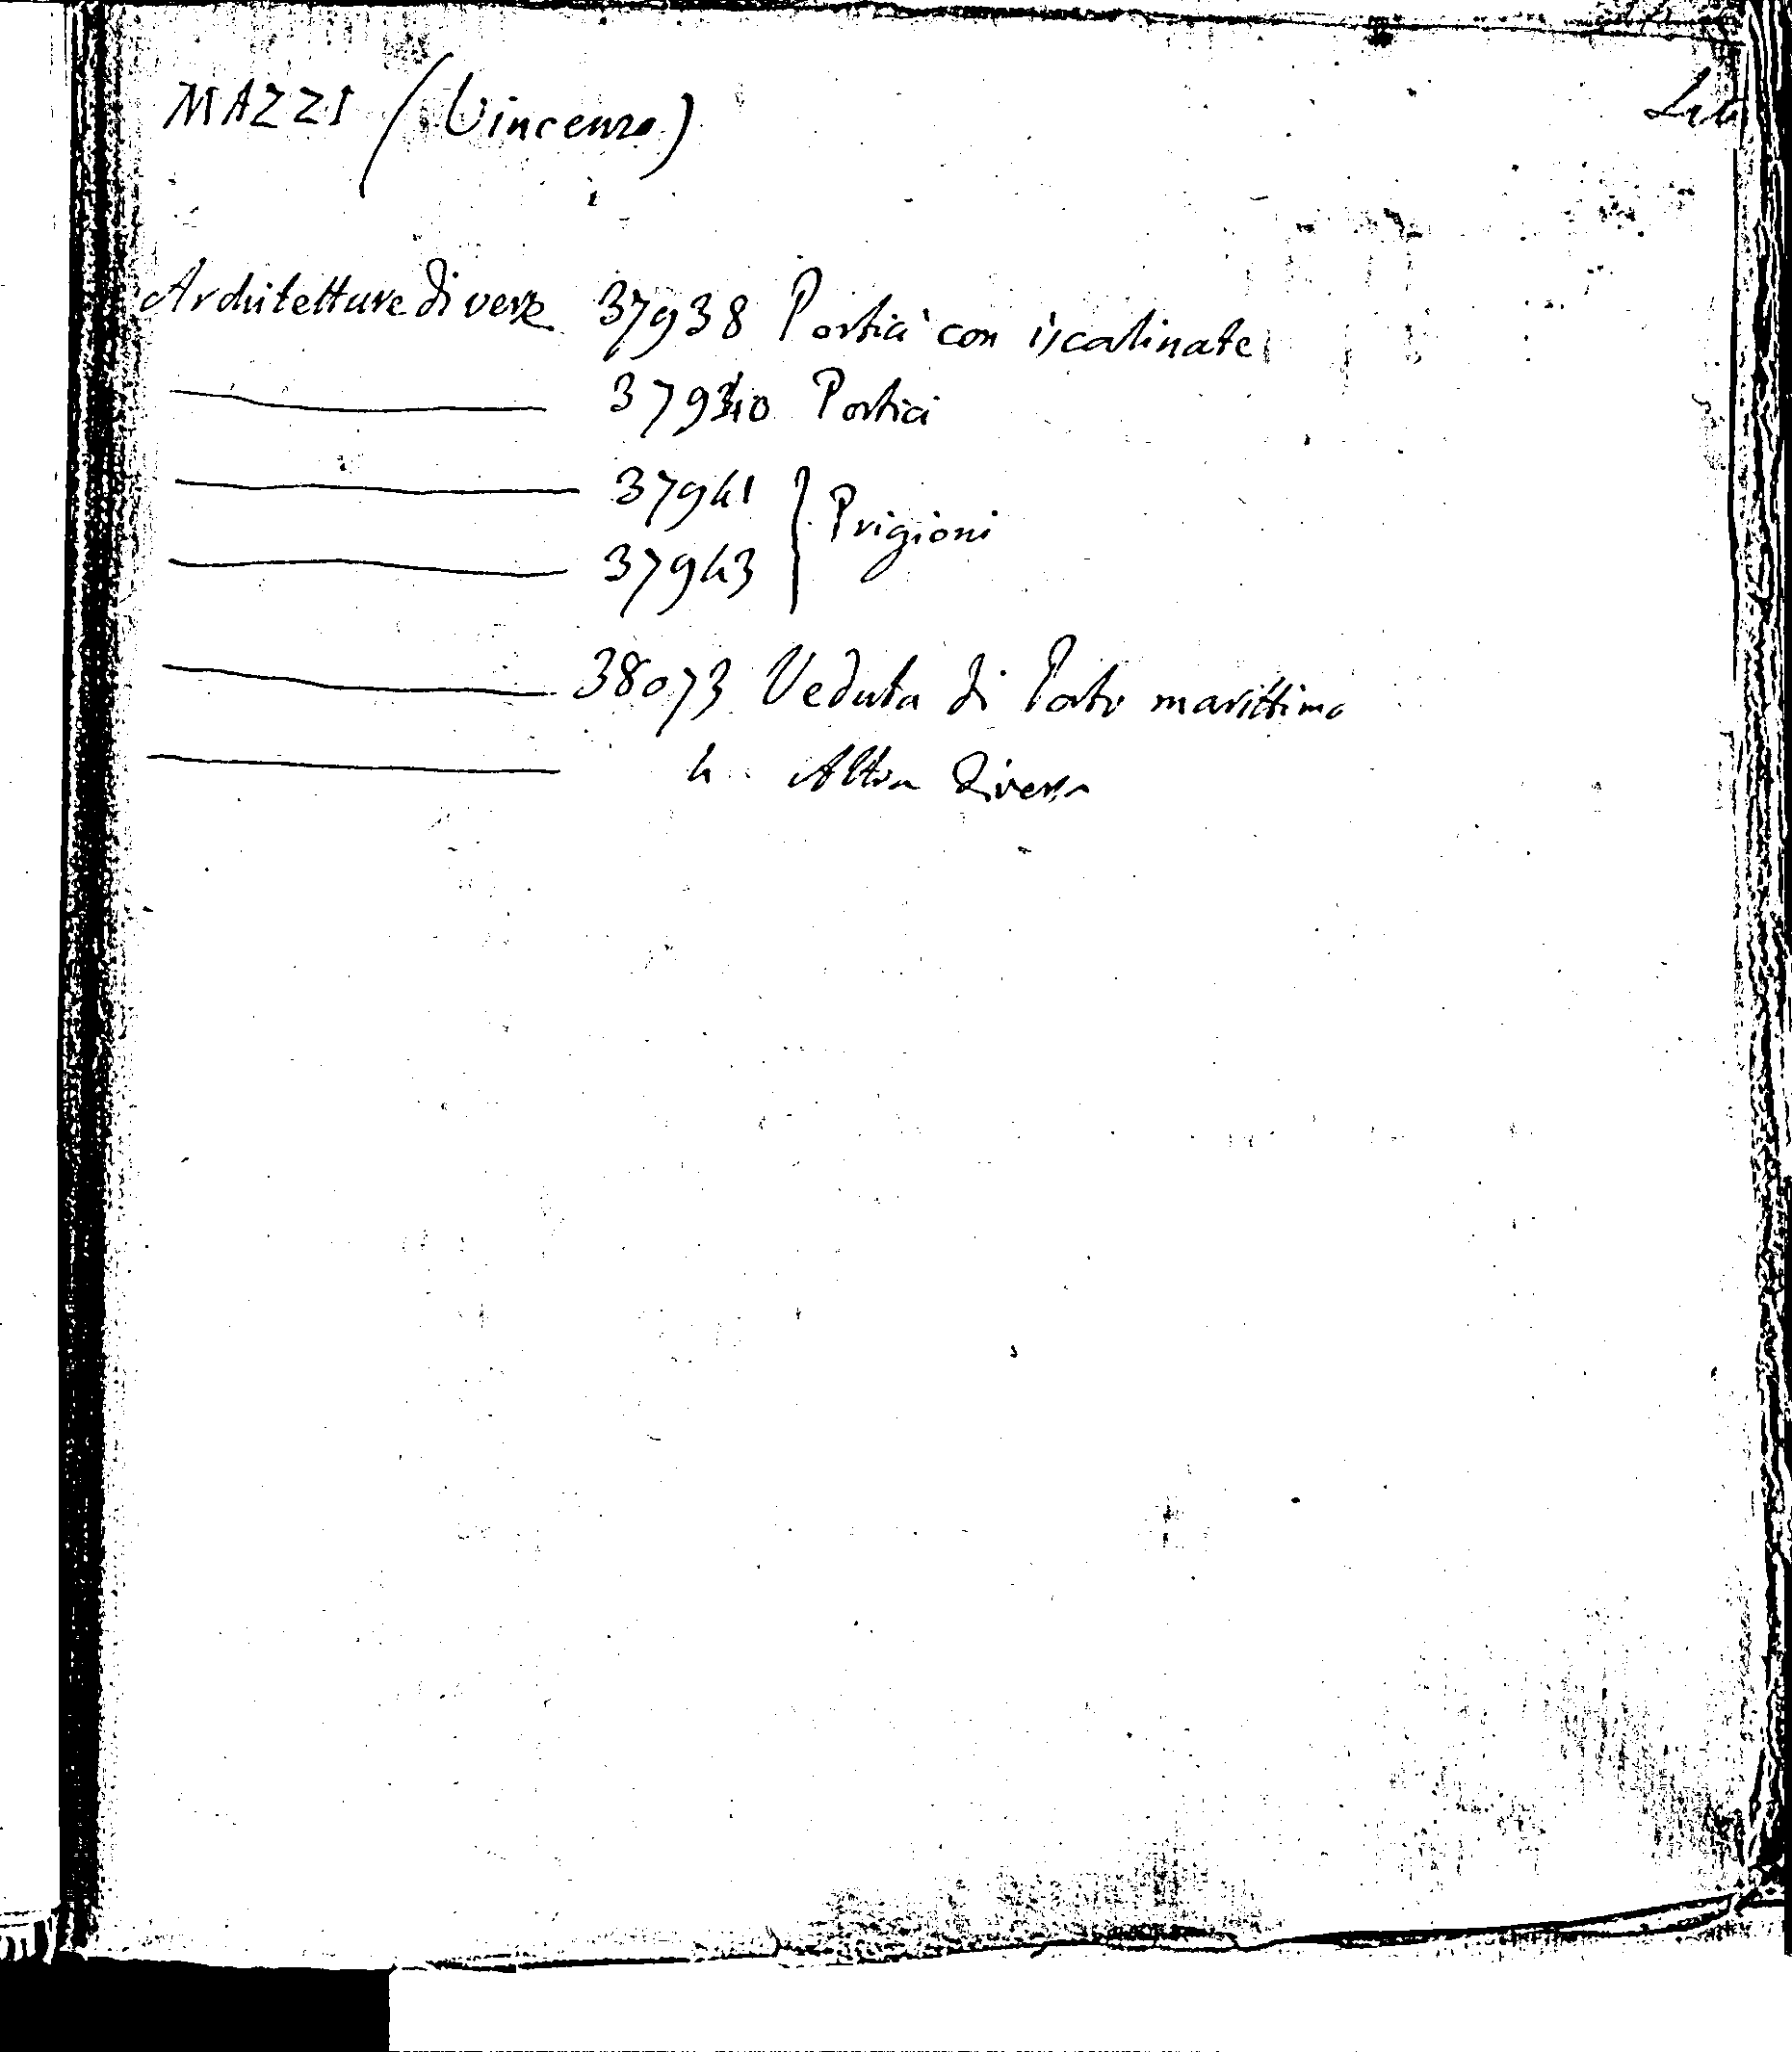 MAZZI (Vincenzo)
Architetture diverse 37938 Portici con iscalinate
37940 Portici
37941
Prigioni
37943
38073 Veduta di Porto marittimo
4 Altra diversa